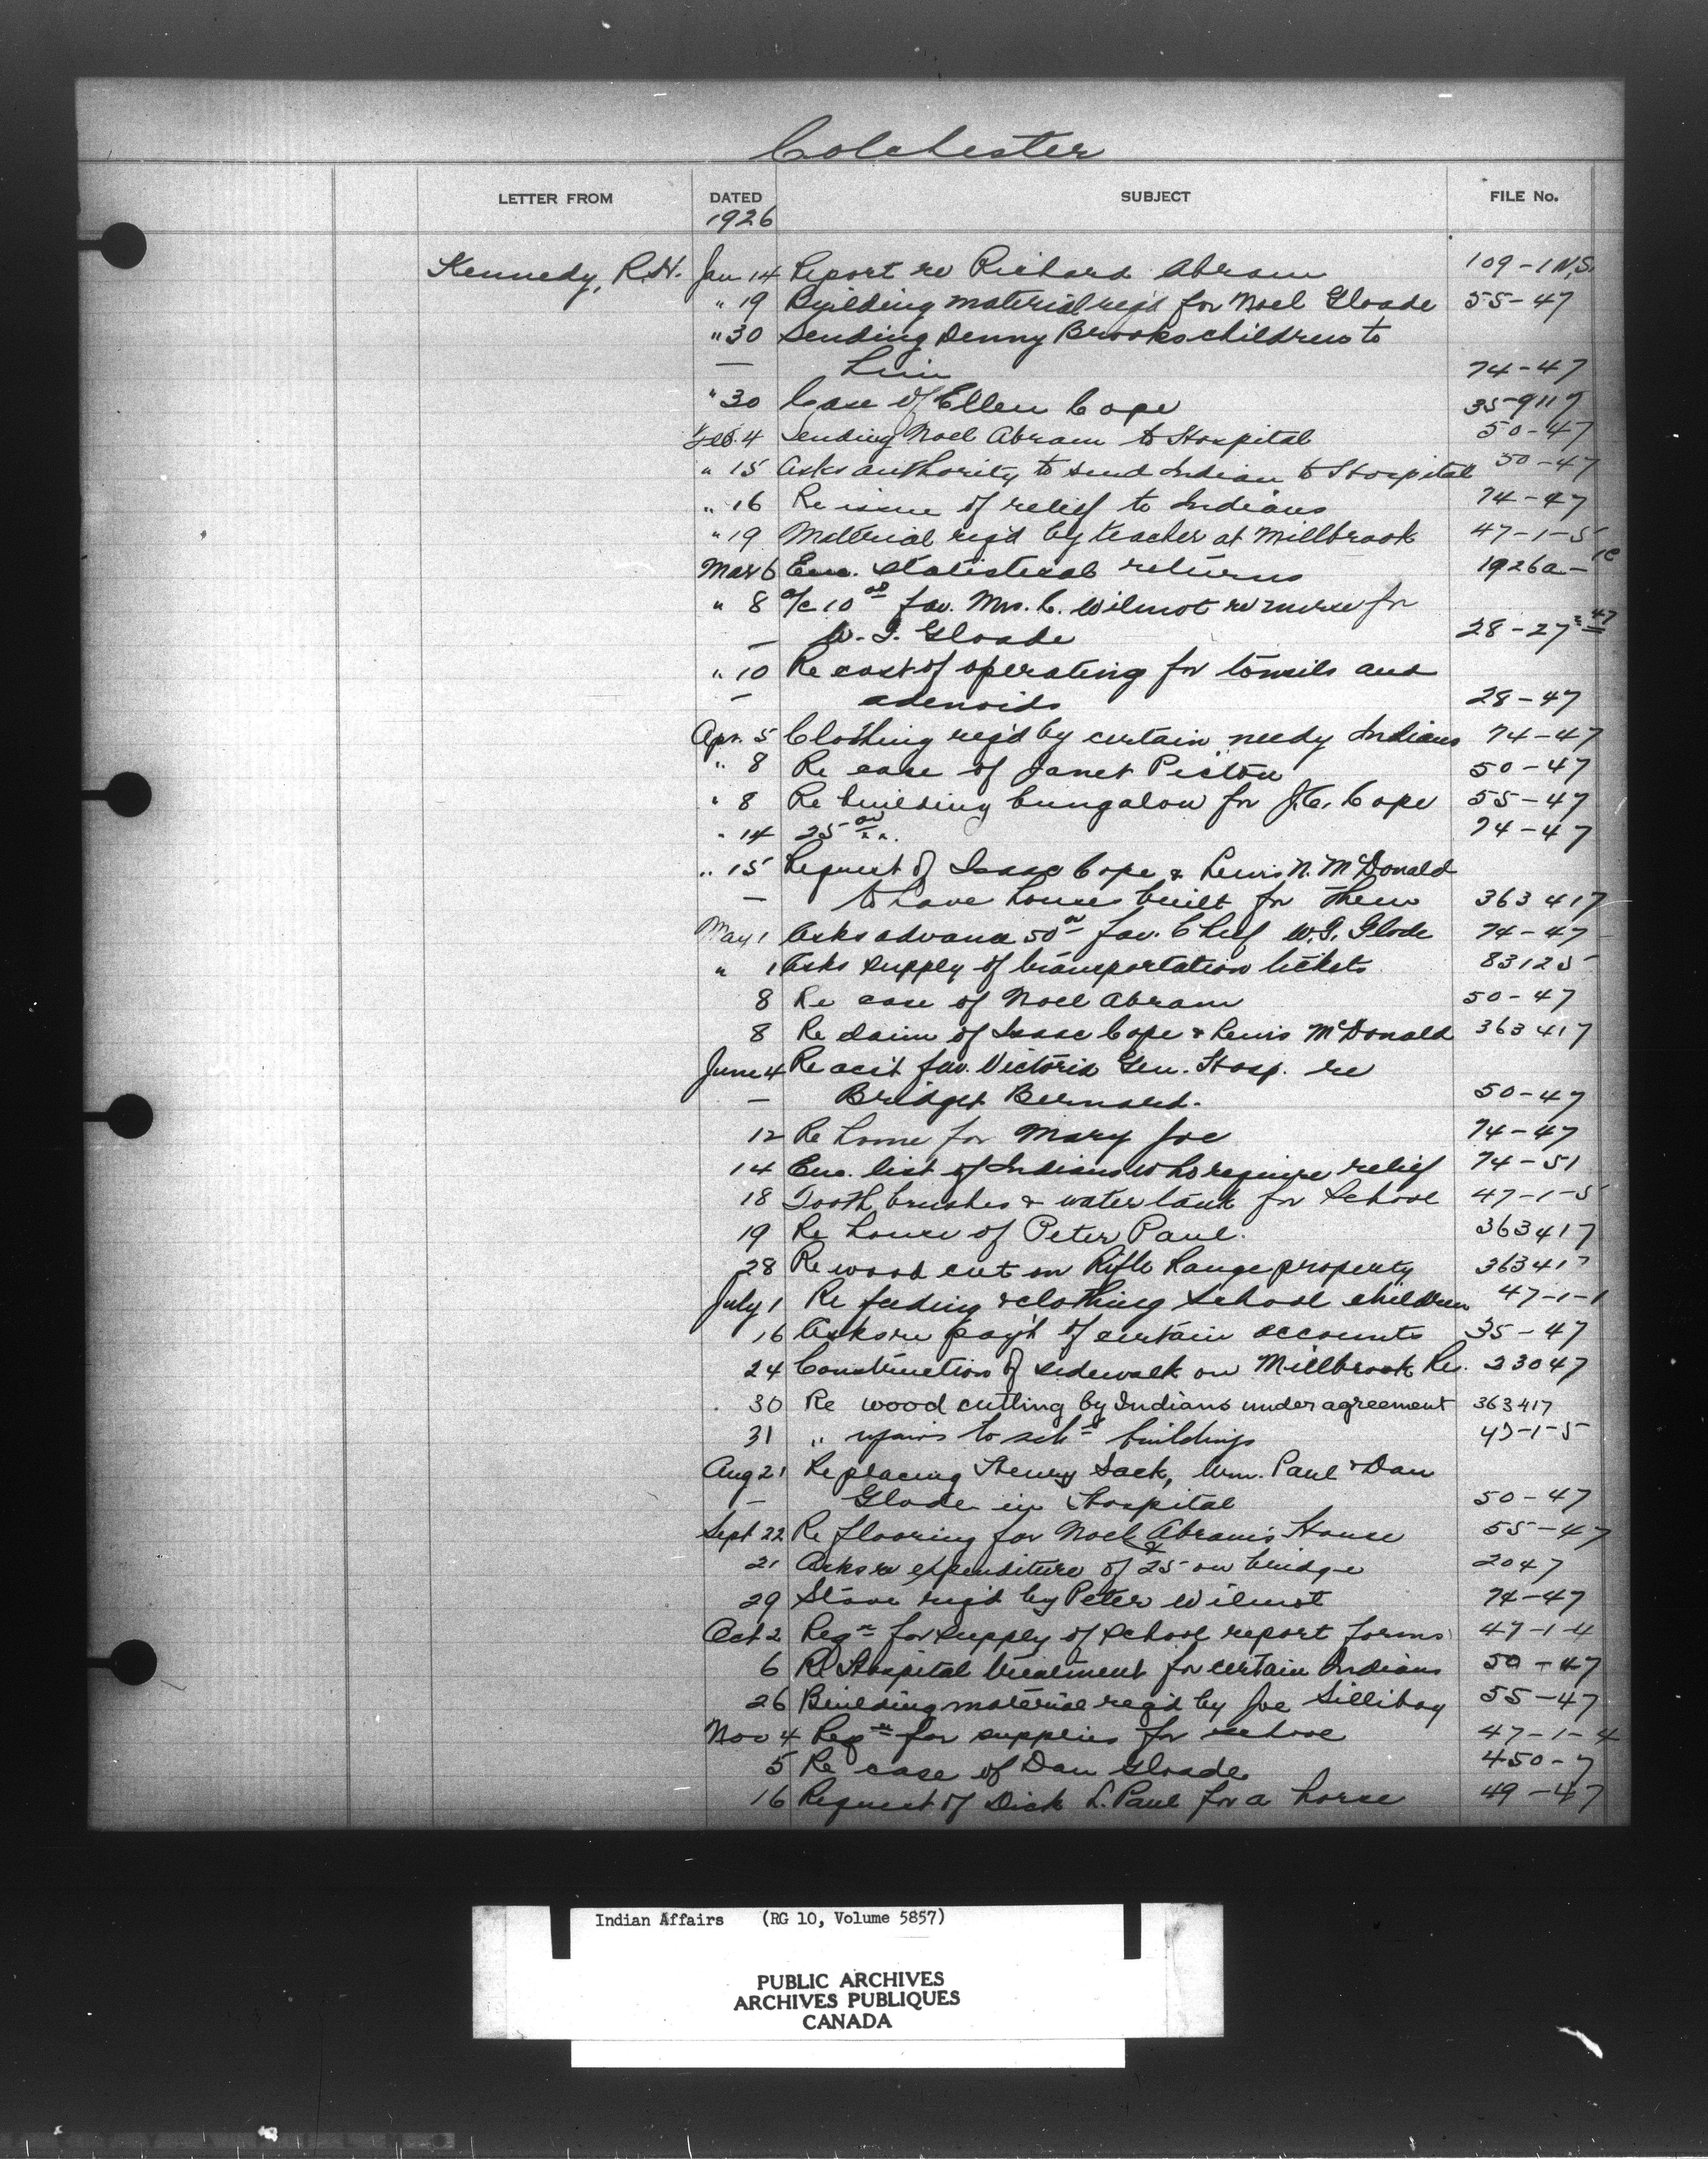 Colchester
LETTER FROM DATED SUBJECT FILE No.
1926
Kennedy, R.H. Jan 14 Report re Richard Abram 109-1 N.S.
" 19 Building material req'd for Noel Gloade 55-47
" 30 Sending Denny Brooks children to
— him 74-47
" 30 Case of Ellen Cope 359117
Feb. 4 Sending Noel Abram to Hospital 50-47
" 15 Asks authority to send Indian to Hospital 50-47
" 16 Re issue of relief to Indians 74-47
" 19 Material req'd by teacher at Millbrook 47-1-5
Mar 6 Enc. statistical returns 1926a-1c
" 8 a/c 10 00 fav. Mrs. C. Wilmot re nurse for
— W. G. Gloade 28-27 = 47
" 10 Re cost of operating for tonsils and
— adenoids 28-47
Apr. 5 Clothing req'd by certain needy Indians 74-47
" 8 Re case of Janet Piston 50-47
" 8 Re building bungalow for J.C. Cope 55-47
" 14 25 00 " " 74-47
" 15 Request of Isaac Cope & Lewis N. McDonald
— to have houses built for them 363417
May 1 Asks advance 50 00 fav. Chief W.G. Glode 74-47
" 1 Asks supply of transportation tickets 83125
8 Re case of Noel Abram 50-47
8 Re claim of Isaac Cope & Lewis McDonald 363417
June 4 Re acc't fav. Victoria Gen. Hosp. re
— Bridget Bernard. 50-47
12 Re home for Mary Joe 74-47
14 Enc. list of Indians who require relief 74-51
18 Tooth brushes & water tank for School 47-1-5
19 Re house of Peter Paul. 363417
28 Re wood cut on Rifle Range property 363417
July 1 Re feeding & clothing School children 47-1-1
16 Asks re pay't of certain accounts 35-47
24 Construction of sidewalk on Millbrook Re. 23047
30 Re wood cutting by Indians under agreement 363417
31 " repairs to sch'l buildings 47-1-5
Aug 21 Replacing Henry Sack, Wm. Paul & Dan
— Glode in Hospital 50-47
Sept 22 Re flooring for Noel Abram's House 55-47
21 Asks re expenditure of $25 on bridge 2047
29 Stove req'd by Peter Wilmot 74-47
Oct 2 Reqn for supply of School report forms 47-1-4
6 Re Hospital treatment for certain Indians 50-47
26 Building material req'd by Joe Sillibay 55-47
Nov 4 Reqn for supplies for school 47-1-4
5 Re case of Dan Gloade 450-7
16 Request of Dick L. Paul for a horse 49-47
Indian Affairs (RG 10, Volume 5857)
PUBLIC ARCHIVES
ARCHIVES PUBLIQUES
CANADA